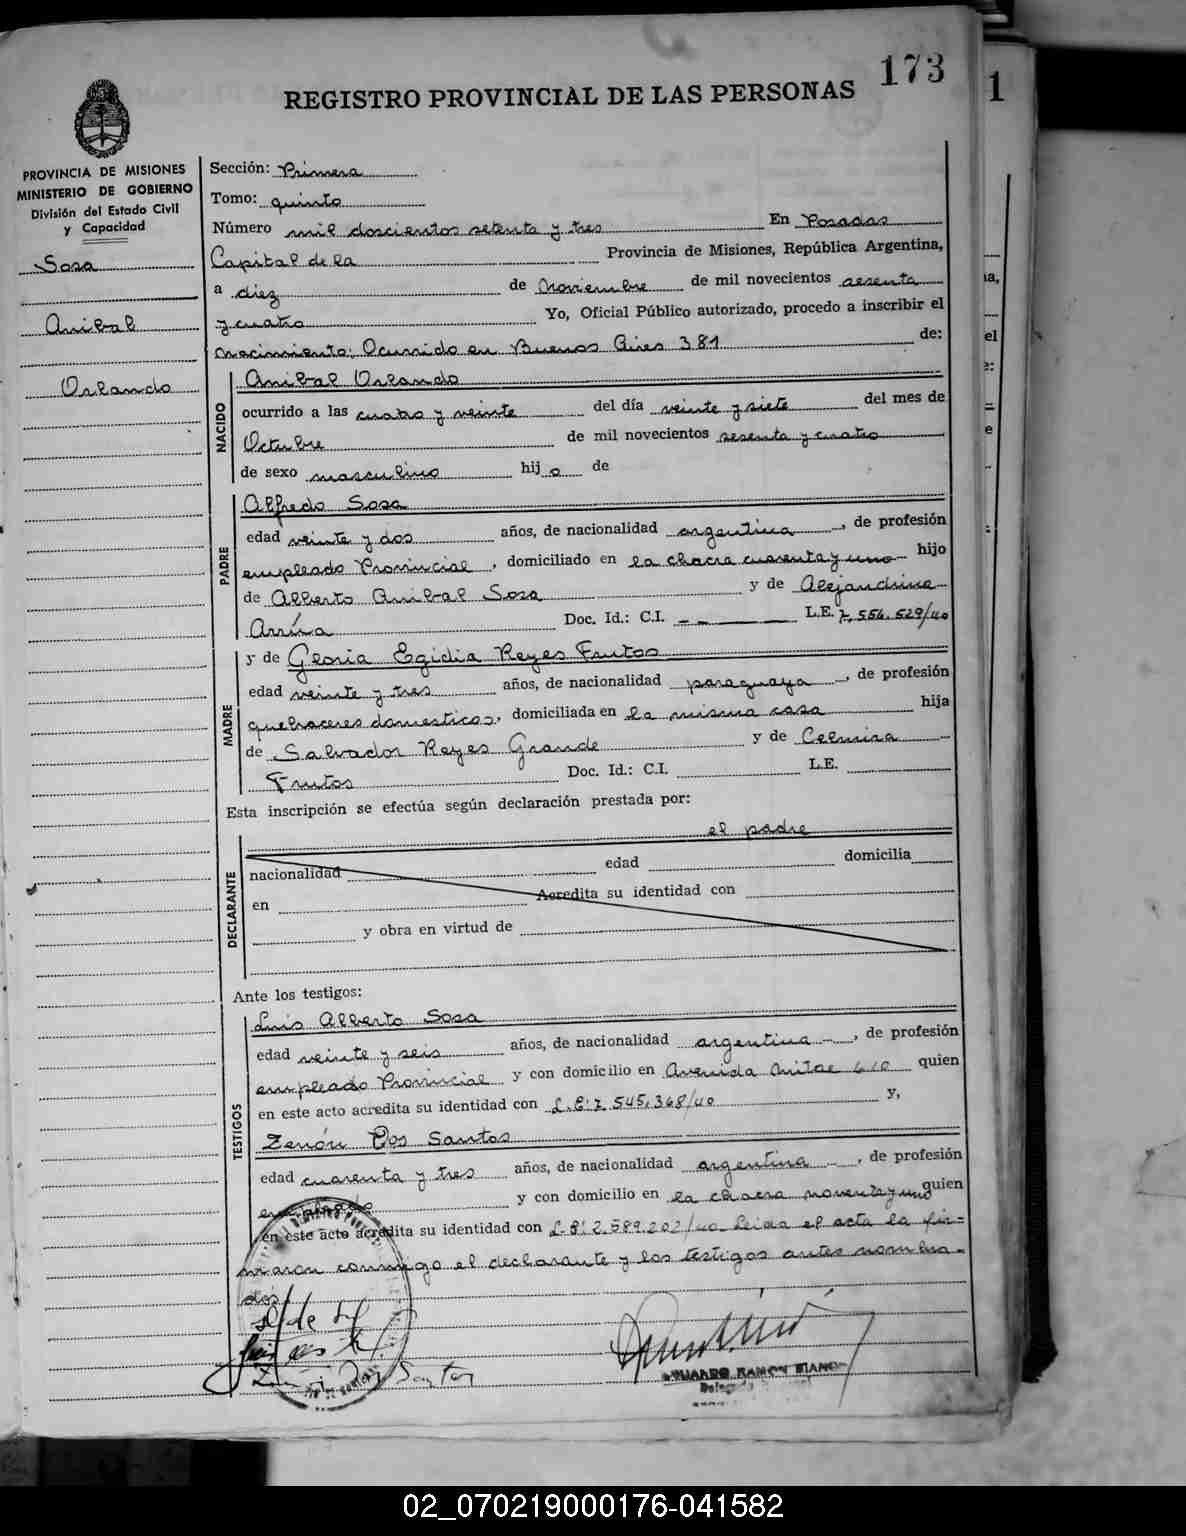 173
1
REGISTRO PROVINCIAL DE LAS PERSONAS
PROVINCIA DE MISIONES
MINISTERIO DE GOBIERNO
División del Estado Civil
y Capacidad
Sosa
Anibal
Orlando
Sección: Primera
Tomo: quinto
Número mil doscientos setenta y tres En Posadas
Capital de la Provincia de Misiones, República Argentina,
a diez de Noviembre de mil novecientos sesenta
y cuatro Yo, Oficial Público autorizado, procedo a inscribir el
nacimiento: Ocurrido en Buenos Aires 381 de:
NACIDO
Anibal Orlando
ocurrido a las cuatro y veinte del día veinte y siete del mes de
Octubre de mil novecientos sesenta y cuatro
de sexo masculino hij o de
PADRE
Alfredo Sosa
edad veinte y dos años, de nacionalidad argentina, de profesión
empleado Provincial, domiciliado en la chacra cuarenta y uno hijo
de Alberto Anibal Sosa y de Alejandrina
Arrúa Doc. Id.: C.I. L.E. 7.556.529/40
MADRE
y de Gloria Egidia Reyes Frutos
edad veinte y tres años, de nacionalidad paraguaya, de profesión
quehaceres domesticos, domiciliada en la misma casa hija
de Salvador Reyes Grande y de Celmira
Frutos Doc. Id.: C.I. L.E.
Esta inscripción se efectúa según declaración prestada por:
el padre
DECLARANTE
nacionalidad edad domicilia
en Acredita su identidad con
y obra en virtud de
Ante los testigos:
TESTIGOS
Luis Alberto Sosa
edad veinte y seis años, de nacionalidad argentina, de profesión
empleado Provincial y con domicilio en Avenida Mitre 610 quien
en este acto acredita su identidad con L.E: 7.545.368/40 y,
Zenón Dos Santos
edad cuarenta y tres años, de nacionalidad argentina, de profesión
empleado y con domicilio en la chacra noventa y uno quien
en este acto acredita su identidad con L.E: 2.589.202/40 Leida el acta la fir=
maron conmigo el declarante y los testigos antes nombra-
dos
Santos
EDUARDO RAMON
02_070219000176-041582